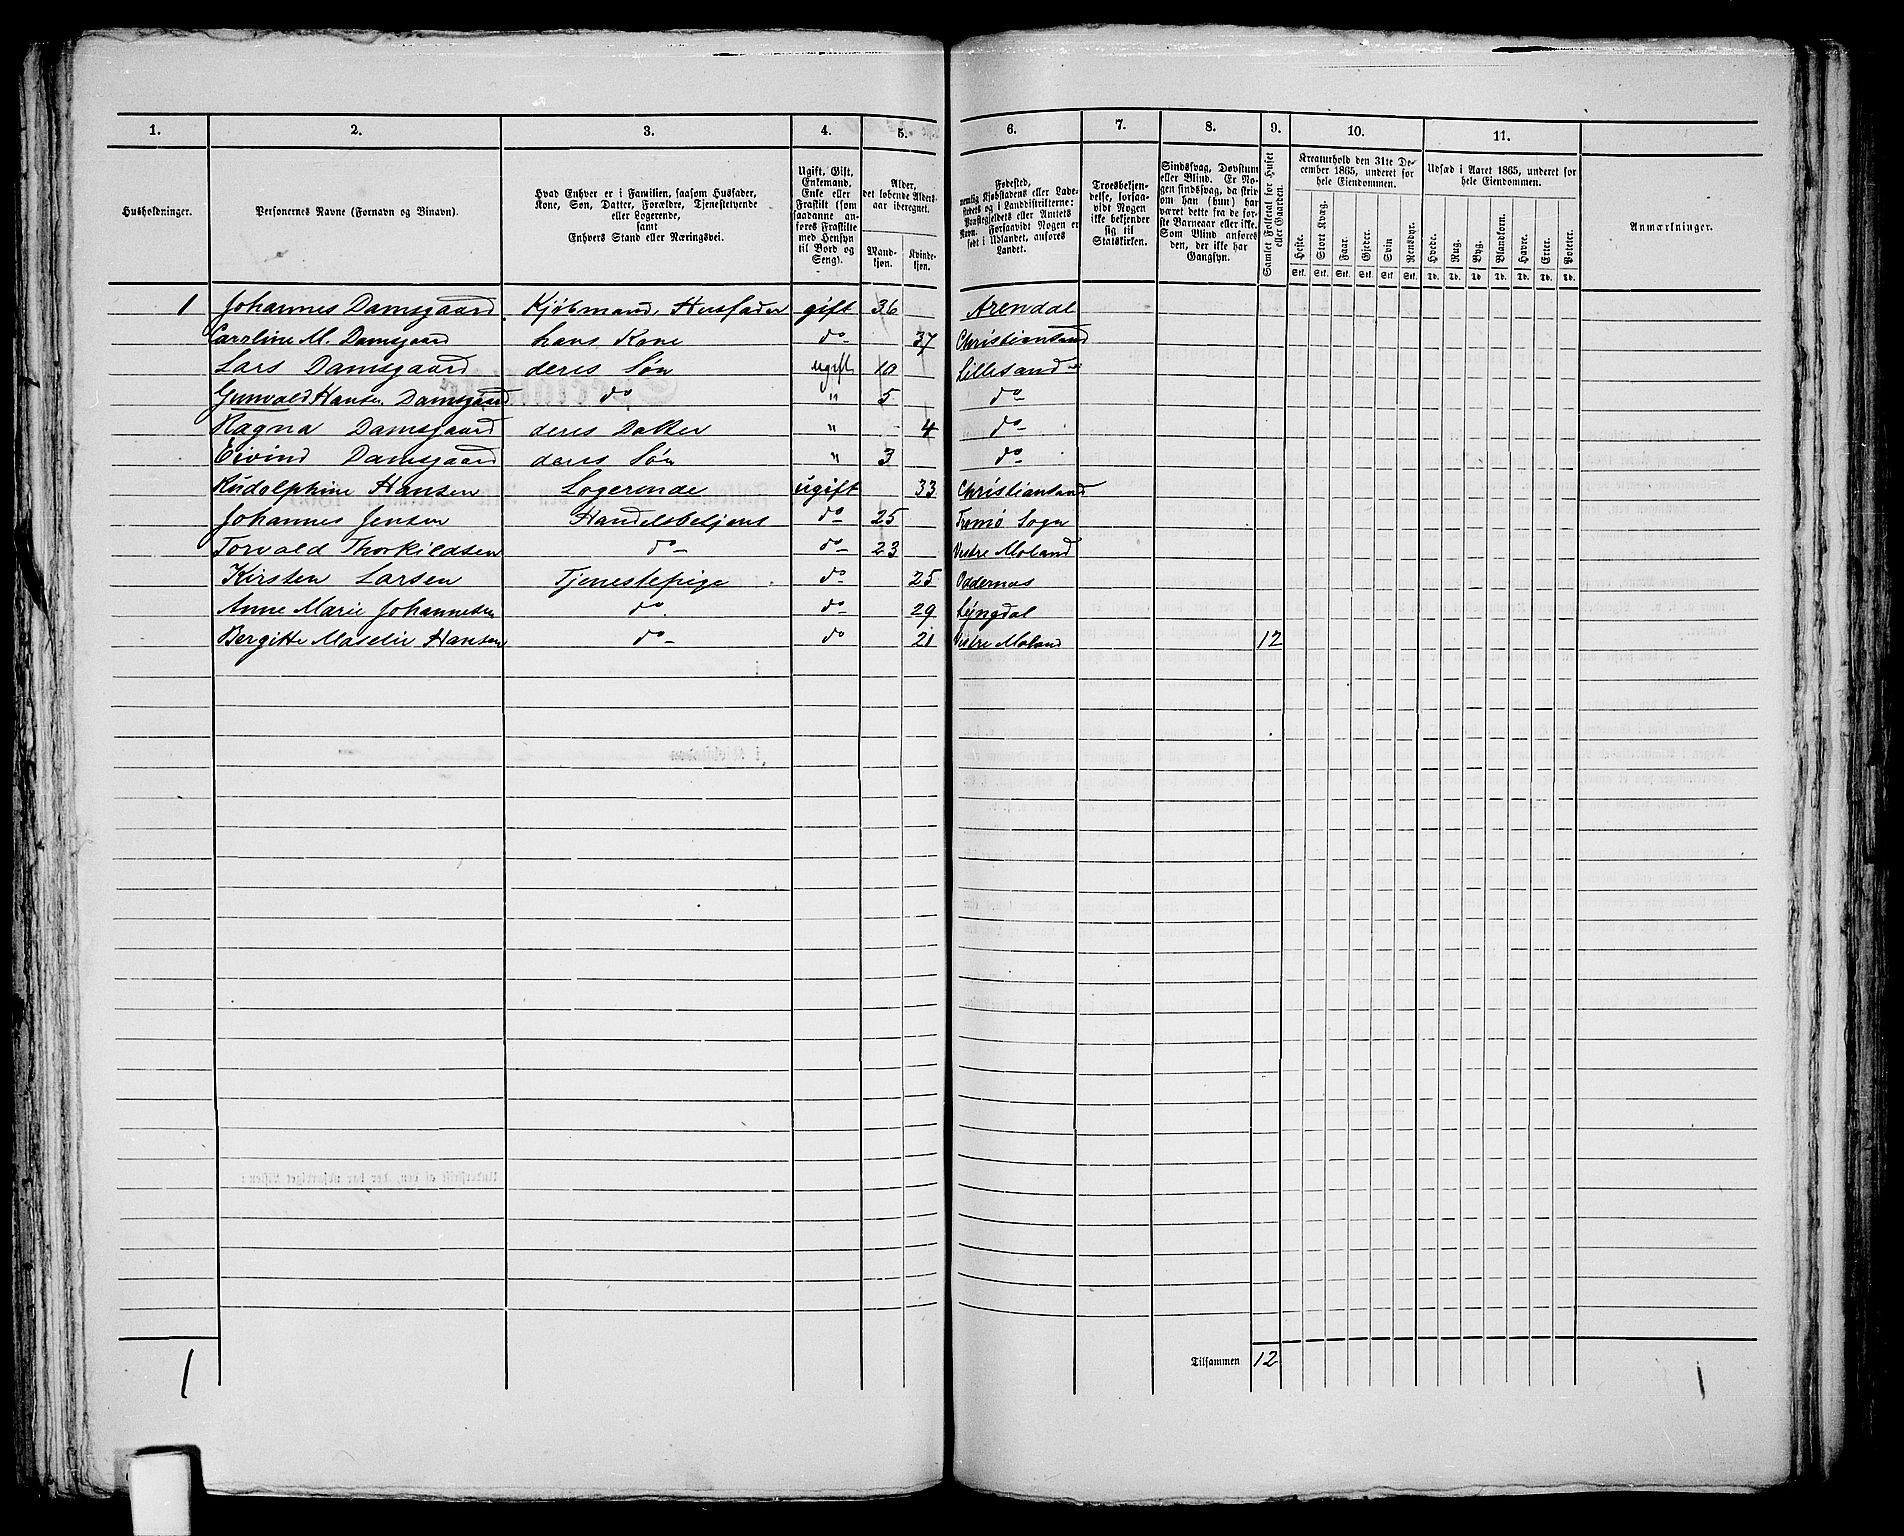 1. 2. 3. 4. 5. 6. 7. 8. 9. 10. 11.
Husholdninger.
Personernes Navne (Fornavn og Binavn).
Hvad Enhver er i Familien, saasom Husfader,
Kone, Søn, Datter, Forældre, Tjenestetyende
eller Logerende,
samt
Enhvers Stand eller Næringsvei.
Ugift, Gift,
Enkemand,
Enke eller
Fraskilt (som
saadanne an-
føres Fraskilte
med Hensyn
til Bord og
Seng).
Alder,
det løbende Alders-
aar iberegnet.
Mand-
kjøn.
Kvinde-
kjøn.
Fødested,
nemlig Kjøbstadens eller Lade-
stedets og i Landdistrikterne:
Præstegjeldets eller Amtets
Navn. Forsaavidt Nogen er
født i Udlandet, anføres
Landet.
Troesbekjen-
delse, forsaa-
vidt Nogen
ikke bekjender
sig til
Statskirken.
Sindssvag, Døvstum
eller Blind. Er No-
gen sindssvag, da skriv
om han (hun) har
været dette fra de for-
ste Barneaar eller ikke.
Som Blind anføres
den, der ikke har
Gangsyn.
Samlet Folketal for Huset
eller Gaarden.
Kreaturhold den 31te De-
cember 1865, underet for
hele Eiendommen.
Heste. Stort Kvæg. Faar. Gjeder. Svin Rensdyr.
Stk. Stk. Stk. Stk. Stk. Stk.
Udsæd i Aaret 1865, underet for
hele Eiendommen.
Hvede. Rug. Byg. Blandkorn. Havre. Erter. Poteter.
Td. Td. Td. Td. Td. Td. Td.
Anmærkninger.
1 Johannes Damsgaard Kjøbmand, Husfader gift 36 Arendal
Caroline M. Damsgaard hans Kone do 37 Christiansand
Lars Damsgaard deres Søn ugift 10 Lillesand
Gunvald Hansen Damsgaard do " 5 do
Ragna Damsgaard deres Datter " 4 do
Eivind Damsgaard deres Søn " 3 do
Rudolphine Hansen Logerende ugift 33 Christiansand
Johannes Jensen Handelsbetjent do 25 Tromø Sogn
Torvald Thorkildsen do do 23 Vestre Moland
Kirsten Larsen Tjenestepige do 25 Oddernæs
Anne Marie Johannesen do do 29 Lyngdal
Bergitte Maselie Hansen do do 21 Vestre Moland 12
1 Tilsammen 12 1